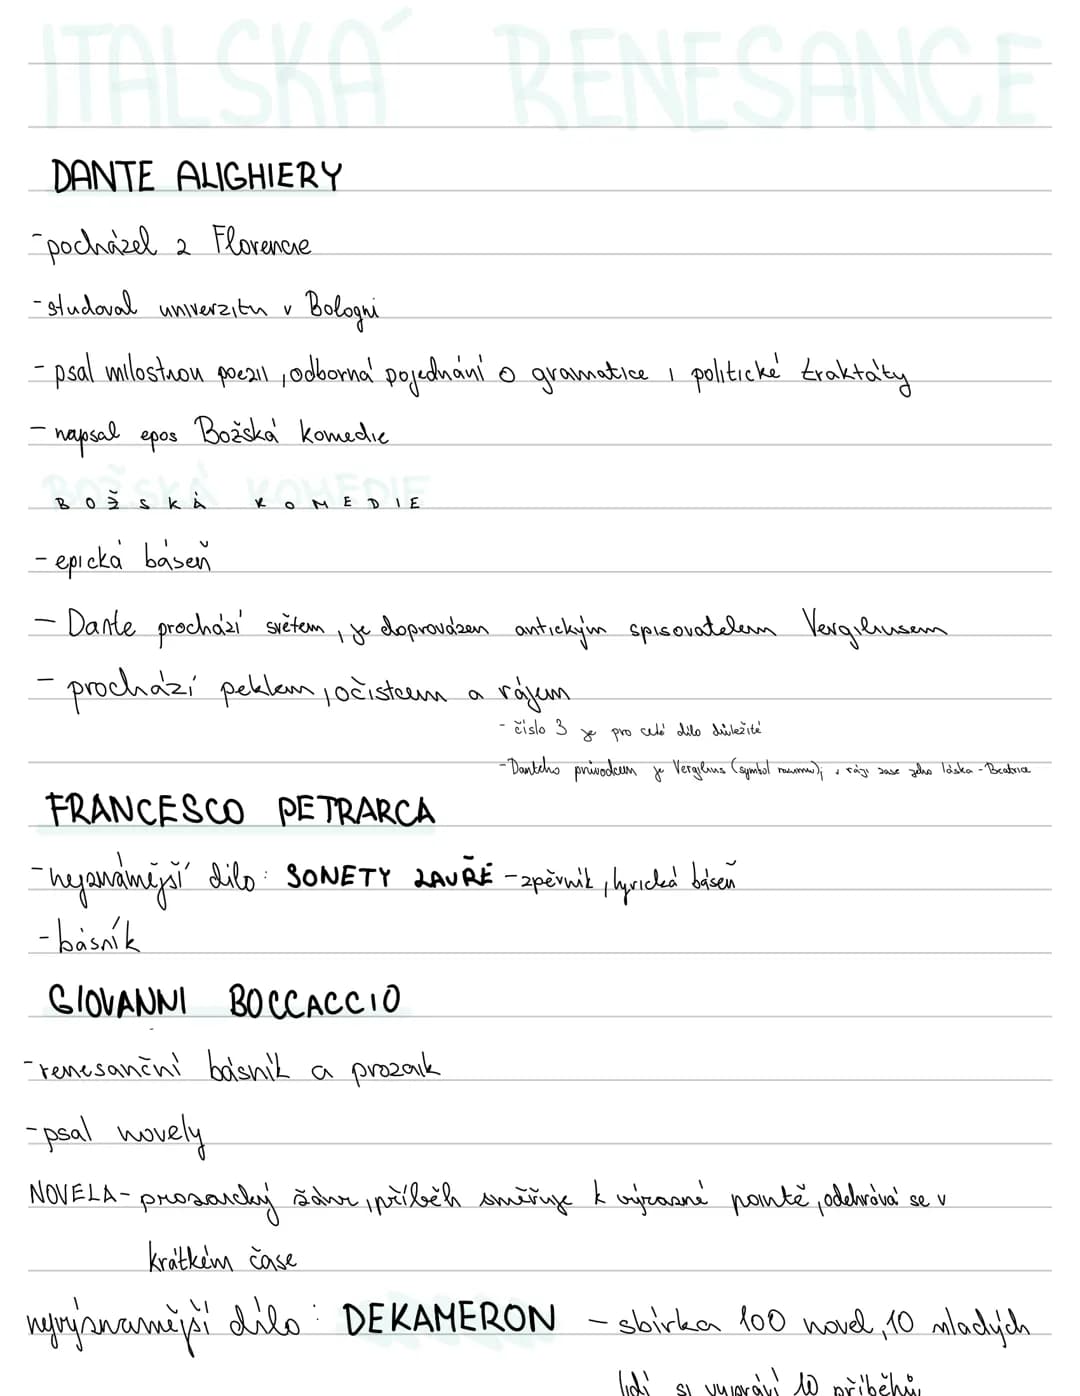 ITALSKÁ RENESANCE
DANTE ALIGHIERY
-pocházel z Florencie
-studoval univerzitu v Bologni
- psal milostnou poezii, odborná pojednání o gramatice i politické traktáty
- napsal epos Božská komedie
BOŽSKÁ KOMEDIE
- epická báseň
- Dante prochází světem, je doprovázen antickým spisovatelem Vergiliusem
- prochází peklem, očistcem a rájem
- číslo 3 je pro celé dílo důležité
- Danteho průvodcem je Vergilius (symbol rozumu); v ráji zase jeho láska - Beatrice
FRANCESCO PETRARCA
-nejznámější dílo: SONETY LAUŘE - zpěvník, lyrická báseň
- básník
GIOVANNI BOCCACCIO
-renesanční básník a prozaik
-psal novely
NOVELA- prozaický žánr, příběh směřuje k výrazné pointě, odehrává se v
krátkém čase
nejvýznamější dílo: DEKAMERON - sbírka 100 novel, 10 mladých
lidí si vypráví 10 příběhů,